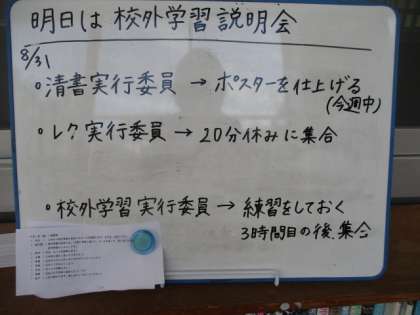 明日は 校外学習説明会
8/31
・清書実行委員 → ポスターを仕上げる
(今週中)
・レク実行委員 → 20分休みに集合
・校外学習実行委員 → 練習をしておく
3時間目の後、集合